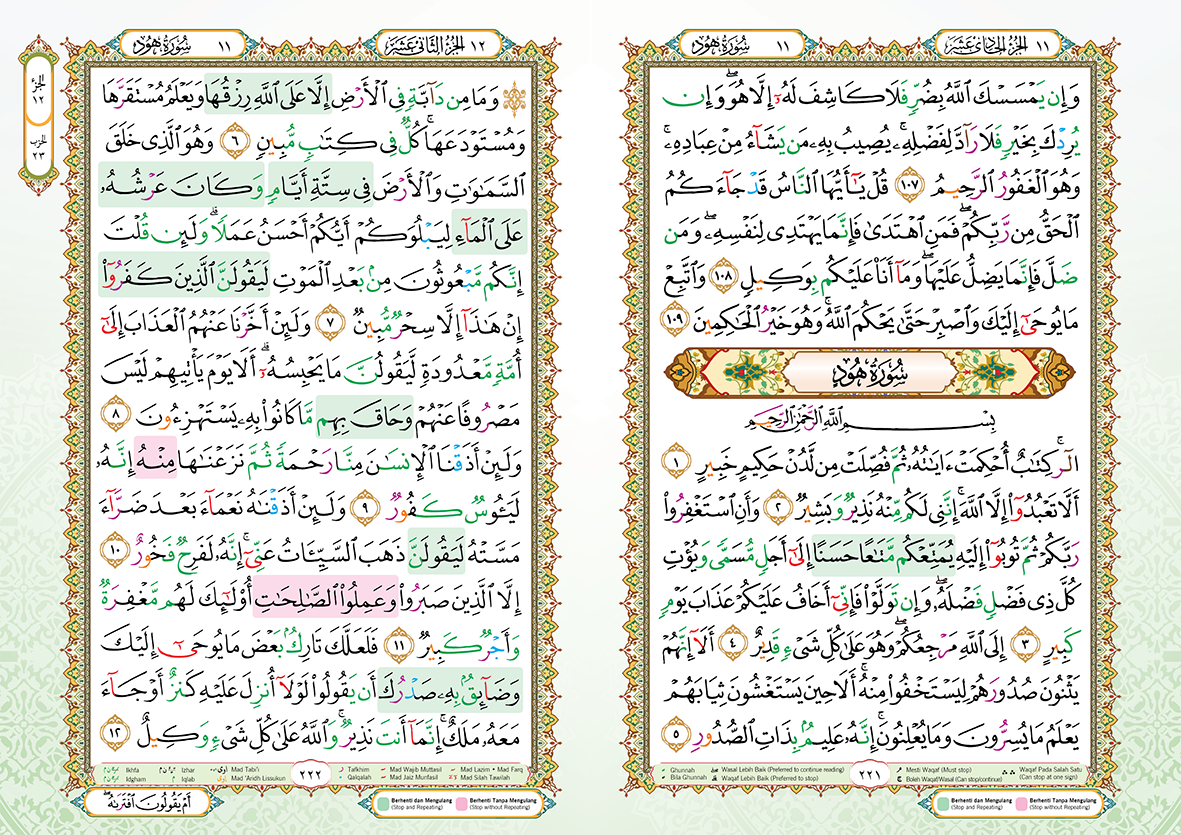 الجزء الحادي عشر ١١
سورة هود ١١
وَإِن يَمْسَسْكَ ٱللَّهُ بِضُرٍّ فَلَا كَاشِفَ لَهُۥٓ إِلَّا هُوَ ۖ وَإِن
يُرِدْكَ بِخَيْرٍ فَلَا رَآدَّ لِفَضْلِهِۦ ۚ يُصِيبُ بِهِۦ مَن يَشَآءُ مِنْ عِبَادِهِۦ ۚ
وَهُوَ ٱلْغَفُورُ ٱلرَّحِيمُ ١٠٧ قُلْ يَـٰٓأَيُّهَا ٱلنَّاسُ قَدْ جَآءَكُمُ
ٱلْحَقُّ مِن رَّبِّكُمْ ۖ فَمَنِ ٱهْتَدَىٰ فَإِنَّمَا يَهْتَدِى لِنَفْسِهِۦ ۖ وَمَن
ضَلَّ فَإِنَّمَا يَضِلُّ عَلَيْهَا ۖ وَمَآ أَنَا۠ عَلَيْكُم بِوَكِيلٍ ١٠٨ وَٱتَّبِعْ
مَا يُوحَىٰٓ إِلَيْكَ وَٱصْبِرْ حَتَّىٰ يَحْكُمَ ٱللَّهُ ۚ وَهُوَ خَيْرُ ٱلْحَـٰكِمِينَ ١٠٩
سُورَةُ هُودٍ
بِسْمِ ٱللَّهِ ٱلرَّحْمَـٰنِ ٱلرَّحِيمِ
الٓر ۚ كِتَـٰبٌ أُحْكِمَتْ ءَايَـٰتُهُۥ ثُمَّ فُصِّلَتْ مِن لَّدُنْ حَكِيمٍ خَبِيرٍ ١
أَلَّا تَعْبُدُوٓا۟ إِلَّا ٱللَّهَ ۚ إِنَّنِى لَكُم مِّنْهُ نَذِيرٌ وَبَشِيرٌ ٢ وَأَنِ ٱسْتَغْفِرُوا۟
رَبَّكُمْ ثُمَّ تُوبُوٓا۟ إِلَيْهِ يُمَتِّعْكُم مَّتَـٰعًا حَسَنًا إِلَىٰٓ أَجَلٍ مُّسَمًّى وَيُؤْتِ
كُلَّ ذِى فَضْلٍ فَضْلَهُۥ ۖ وَإِن تَوَلَّوْا۟ فَإِنِّىٓ أَخَافُ عَلَيْكُمْ عَذَابَ يَوْمٍ
كَبِيرٍ ٣ إِلَى ٱللَّهِ مَرْجِعُكُمْ ۖ وَهُوَ عَلَىٰ كُلِّ شَىْءٍ قَدِيرٌ ٤ أَلَآ إِنَّهُمْ
يَثْنُونَ صُدُورَهُمْ لِيَسْتَخْفُوا۟ مِنْهُ ۚ أَلَا حِينَ يَسْتَغْشُونَ ثِيَابَهُمْ
يَعْلَمُ مَا يُسِرُّونَ وَمَا يُعْلِنُونَ ۚ إِنَّهُۥ عَلِيمٌۢ بِذَاتِ ٱلصُّدُورِ ٥
٢٢١
Ghunnah
Bila Ghunnah
Wasal Lebih Baik (Preferred to continue reading)
Waqaf Lebih Baik (Preferred to stop)
Mesti Waqaf (Must stop)
Boleh Waqaf/Wasal (Can stop/continue)
Waqaf Pada Salah Satu (Can stop at one sign)
Berhenti dan Mengulang
(Stop and Repeating)
Berhenti Tanpa Mengulang
(Stop without Repeating)
الجزء الثاني عشر ١٢
سورة هود ١١
الجزء
١٢
الحزب
٢٣
۞ وَمَا مِن دَآبَّةٍ فِى ٱلْأَرْضِ إِلَّا عَلَى ٱللَّهِ رِزْقُهَا وَيَعْلَمُ مُسْتَقَرَّهَا
وَمُسْتَوْدَعَهَا ۚ كُلٌّ فِى كِتَـٰبٍ مُّبِينٍ ٦ وَهُوَ ٱلَّذِى خَلَقَ
ٱلسَّمَـٰوَٰتِ وَٱلْأَرْضَ فِى سِتَّةِ أَيَّامٍ وَكَانَ عَرْشُهُۥ
عَلَى ٱلْمَآءِ لِيَبْلُوَكُمْ أَيُّكُمْ أَحْسَنُ عَمَلًا ۗ وَلَئِن قُلْتَ
إِنَّكُم مَّبْعُوثُونَ مِنۢ بَعْدِ ٱلْمَوْتِ لَيَقُولَنَّ ٱلَّذِينَ كَفَرُوٓا۟
إِنْ هَـٰذَآ إِلَّا سِحْرٌ مُّبِينٌ ٧ وَلَئِنْ أَخَّرْنَا عَنْهُمُ ٱلْعَذَابَ إِلَىٰٓ
أُمَّةٍ مَّعْدُودَةٍ لَّيَقُولُنَّ مَا يَحْبِسُهُۥٓ ۗ أَلَا يَوْمَ يَأْتِيهِمْ لَيْسَ
مَصْرُوفًا عَنْهُمْ وَحَاقَ بِهِم مَّا كَانُوا۟ بِهِۦ يَسْتَهْزِءُونَ ٨
وَلَئِنْ أَذَقْنَا ٱلْإِنسَـٰنَ مِنَّا رَحْمَةً ثُمَّ نَزَعْنَـٰهَا مِنْهُ إِنَّهُۥ
لَيَـُٔوسٌ كَفُورٌ ٩ وَلَئِنْ أَذَقْنَـٰهُ نَعْمَآءَ بَعْدَ ضَرَّآءَ
مَسَّتْهُ لَيَقُولَنَّ ذَهَبَ ٱلسَّيِّـَٔاتُ عَنِّىٓ ۚ إِنَّهُۥ لَفَرِحٌ فَخُورٌ ١٠
إِلَّا ٱلَّذِينَ صَبَرُوا۟ وَعَمِلُوا۟ ٱلصَّـٰلِحَـٰتِ أُو۟لَـٰٓئِكَ لَهُم مَّغْفِرَةٌ
وَأَجْرٌ كَبِيرٌ ١١ فَلَعَلَّكَ تَارِكٌۢ بَعْضَ مَا يُوحَىٰٓ إِلَيْكَ
وَضَآئِقٌۢ بِهِۦ صَدْرُكَ أَن يَقُولُوا۟ لَوْلَآ أُنزِلَ عَلَيْهِ كَنزٌ أَوْ جَآءَ
مَعَهُۥ مَلَكٌ ۚ إِنَّمَآ أَنتَ نَذِيرٌ ۚ وَٱللَّهُ عَلَىٰ كُلِّ شَىْءٍ وَكِيلٌ ١٢
Ikhfa
Idgham
Izhar
Iqlab
Mad Tabi'i
Mad 'Aridh Lissukun
٢٢٢
Tafkhim
Qalqalah
Mad Wajib Muttasil
Mad Jaiz Munfasil
Mad Lazim
Mad Farq
Mad Silah Tawilah
أَمْ يَقُولُونَ ٱفْتَرَىٰهُ ۖ
Berhenti dan Mengulang
(Stop and Repeating)
Berhenti Tanpa Mengulang
(Stop without Repeating)